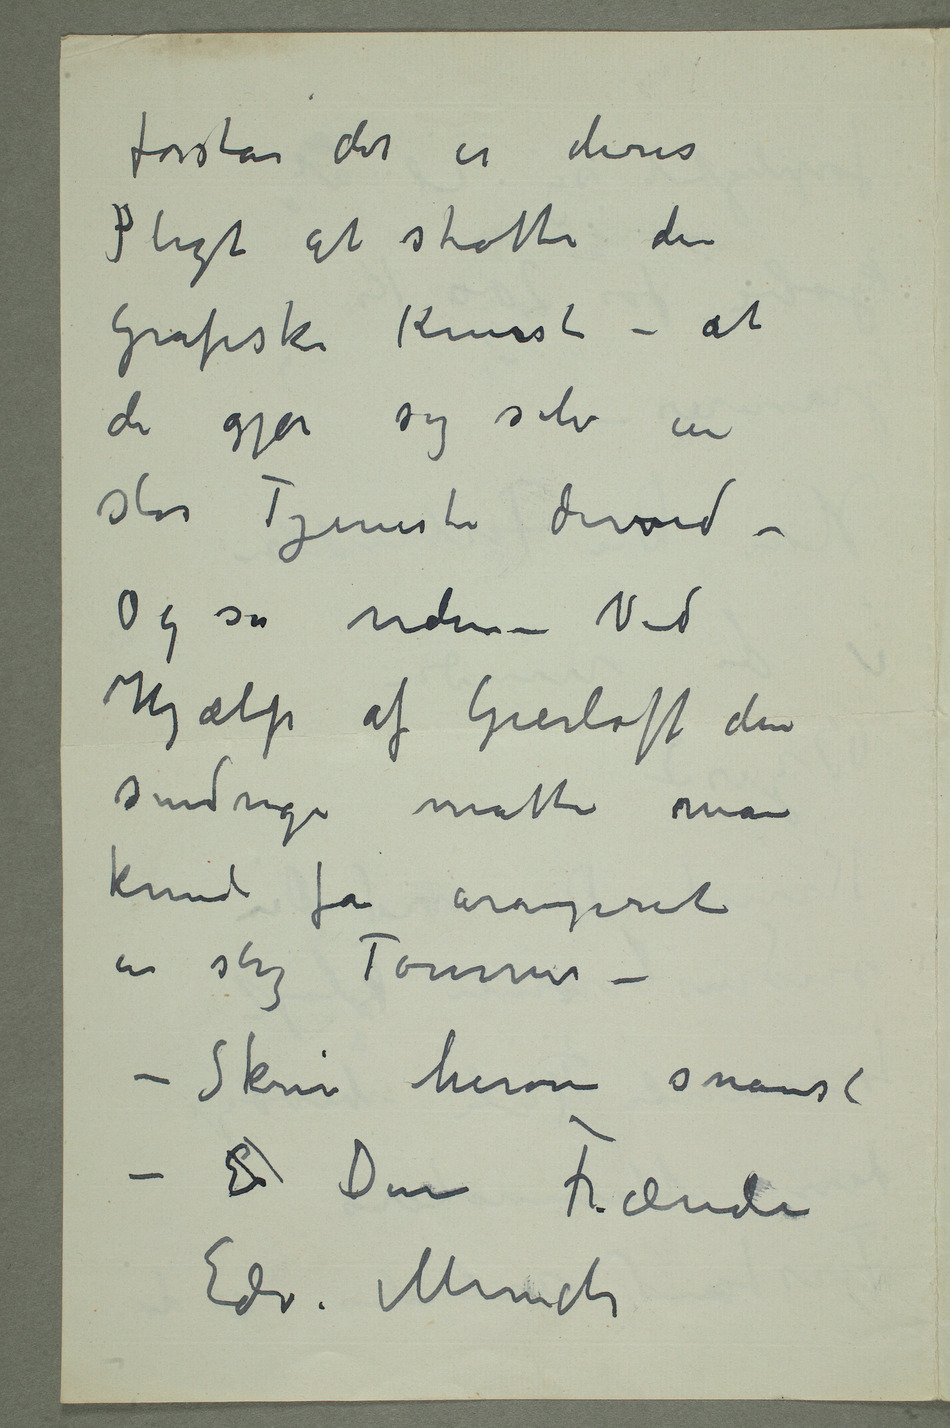 forstår det er deres
Pligt at støtte den
Grafiske Kunst – at
de gjør sig selv en
stor Tjeneste derved –
Og så videre – Ved
Hjælp af Gierløff den
sindrige måtte man
kunde få arangeret
en slig Tourne –
– Skriv herom snarest
– Din Frænde
Edv. Munch